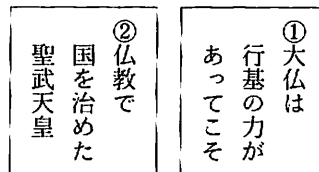 ①大仏は
行基の力が
あってこそ
②仏教で
国を治めた
聖武天皇